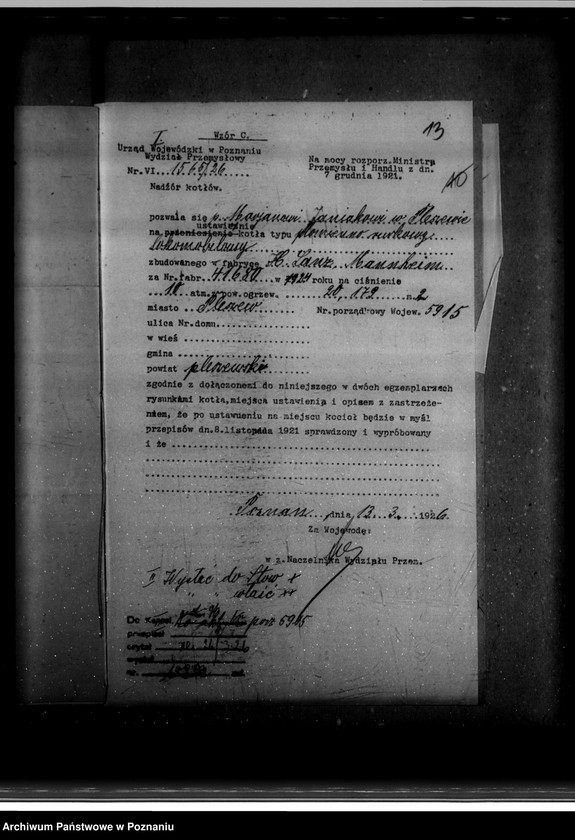 13
I. Wzór C.
Urząd Wojewódzki w Poznaniu
Wydział Przemysłowy
Nr.VI...1565/26...
Nadzór kotłów.
Na mocy rozporz.Ministra
Przemysłu i Handlu z dn.
7 grudnia 1921.
pozwala się p. Marjanowi Janiakowi w Pleszewie
ustawienie
na przeniesienie kotła typu płomienno rurkowy
lokomobilowy
zbudowanego w fabryce H. Lanz Mannheim
za Nr.fabr. 41680 w 1924 roku na ciśnienie
10 atm. pow.ogrzew. 20,179 m2
miasto Pleszew Nr.porządkowy Wojew. 5915
ulica Nr.domu
w wieś
gmina
powiat pleszewski
zgodnie z dołączonemi do niniejszego w dwóch egzemplarzach
rysunkami kotła,miejsca ustawienia i opisem z zastrzeże-
niem, że po ustawieniu na miejscu kocioł będzie w myśl
przepisów dn.8.listopada 1921 sprawdzony i wypróbowany
i że
Poznań, dnia 13. 3. 1926
Za Wojewodę:
w z.Naczelnika Wydziału Przem.
II Wysłać do Stow +
" " właśc ++
Do Kancel.
przepisał
czytał
wysłał
nr.
porz 5915
Archiwum Państwowe w Poznaniu